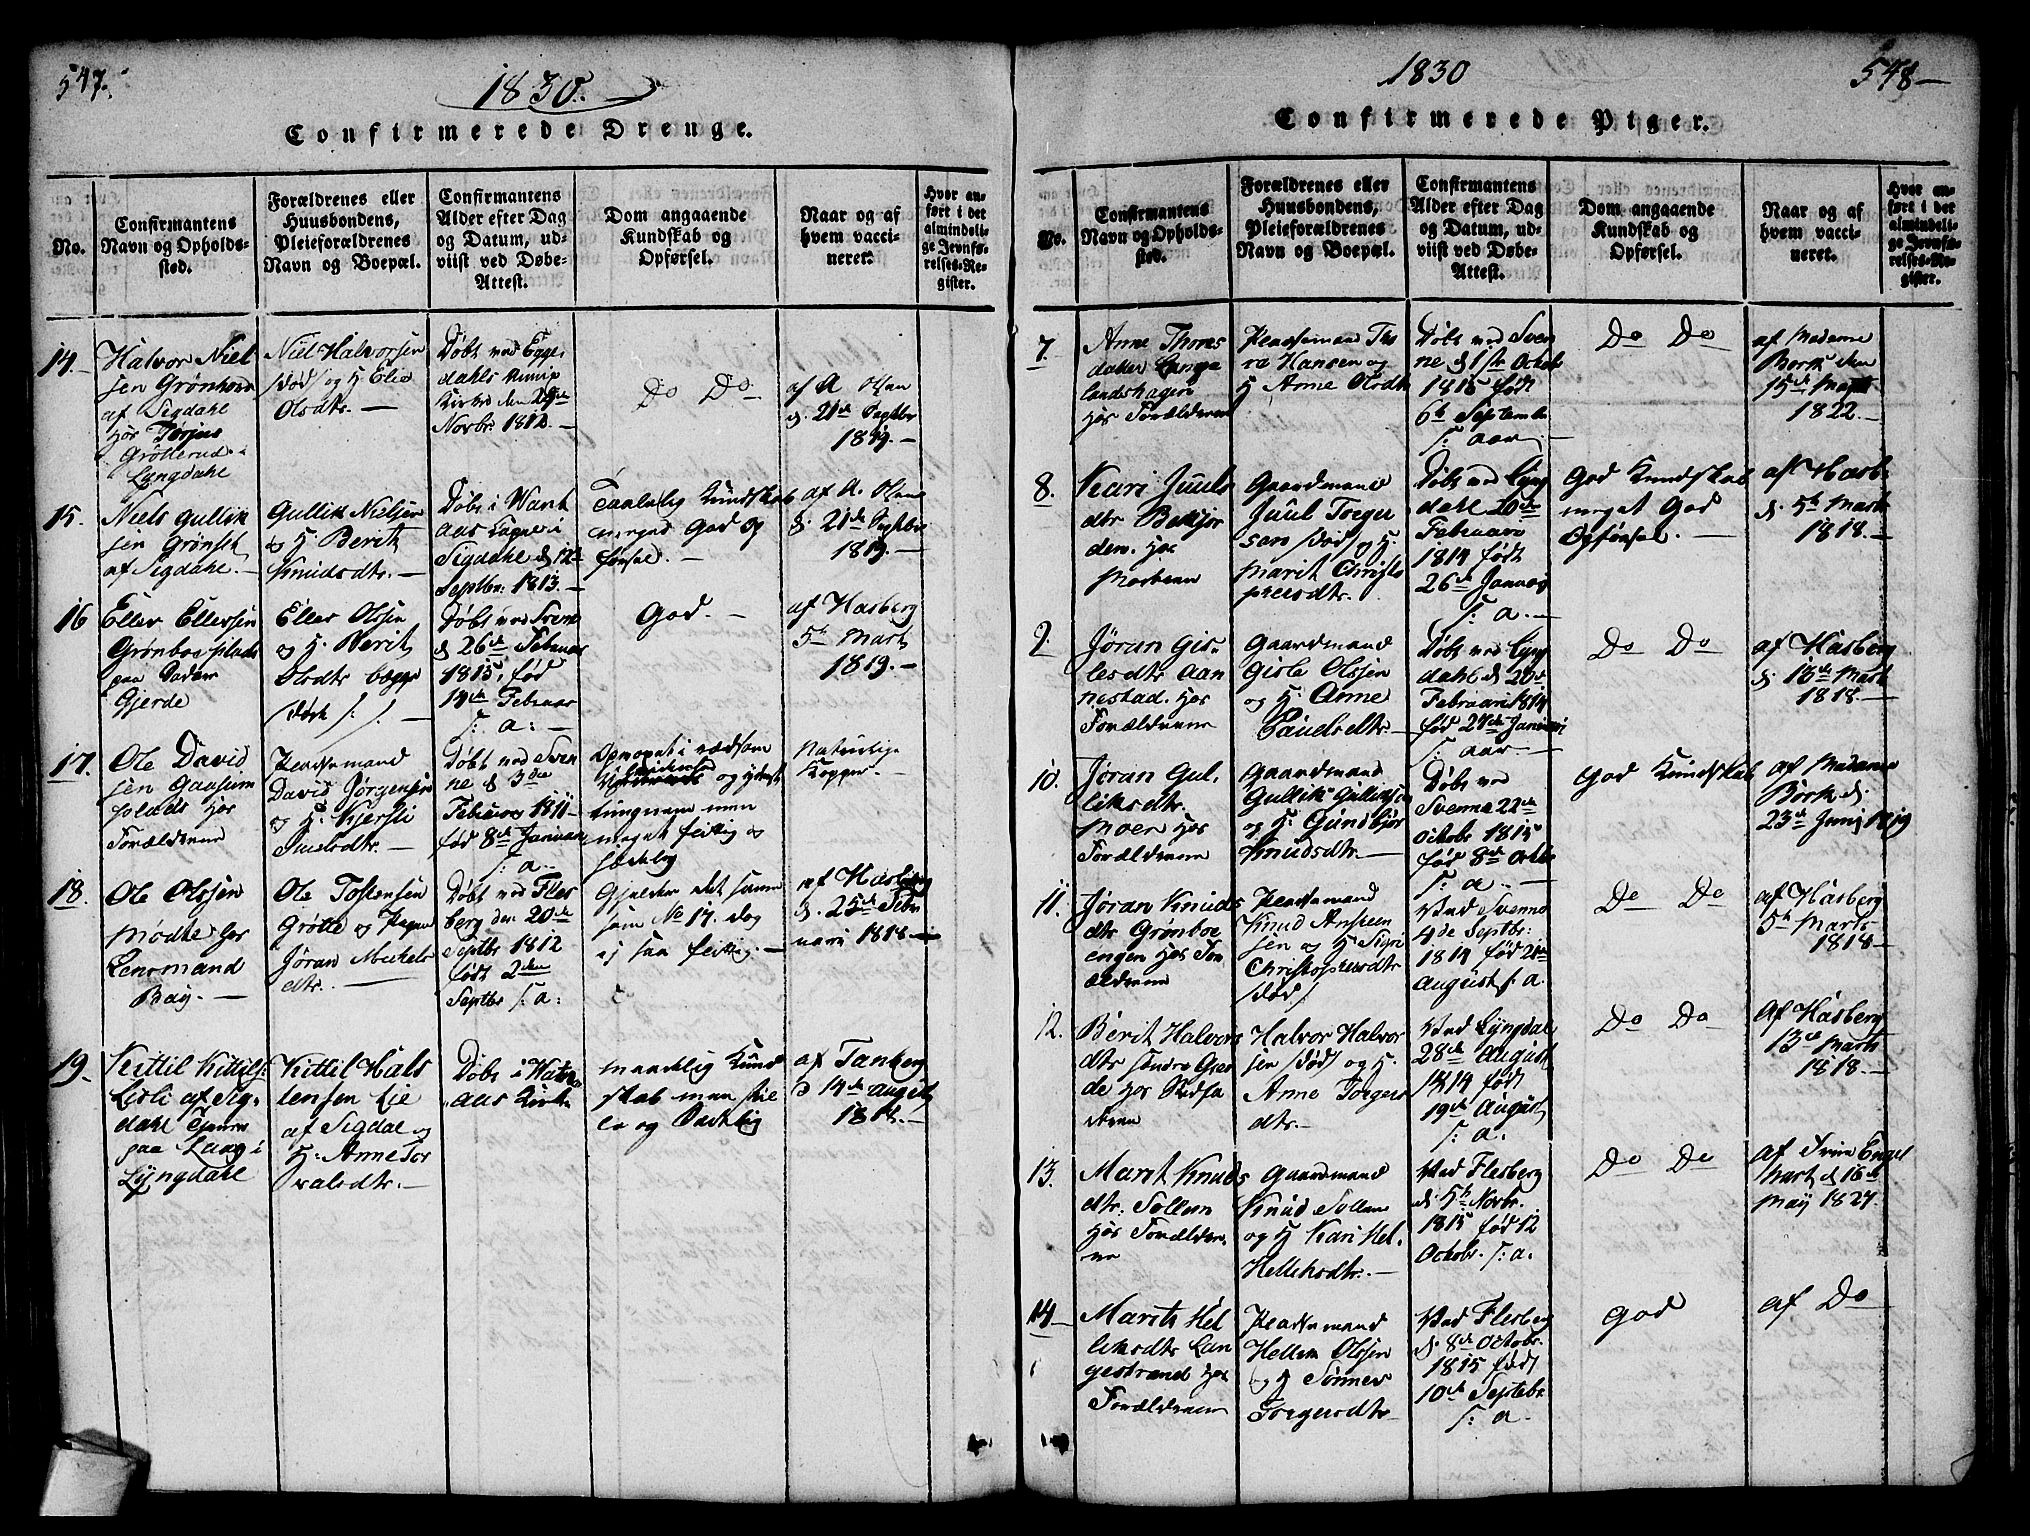 547.
1830.
Confirmerede Drenge.
No.
Confirmantens
Navn og Opholds-
sted.
Forældrenes eller
Huusbondens,
Pleieforældrenes
Navn og Boepæl.
Confirmantens
Alder efter Dag
og Datum, ud-
viist ved Døbe-
Attest.
Dom angaaende
Kundskab og
Opførsel.
Naar og af
hvem vacci-
neret.
Hvor an-
ført i det
almindeli-
ge Jevnfø-
relses-Re-
gister.
14.
Halvor Niel
sen Grønhovd
af Sigdahl
hos Torjus
Grøtterud i
Lyngdahl
Niel Halvorsen
/død/ og H Elie
Olsdtr. —
Døbt ved Egge
dahls
Kirke den 29de
Novbr. 1812. —
Do Do
af A Olsen
d. 21de Septbr
1819. —
15.
Niels Gullik
sen Grønset
af Sigdahl. —
Gullik Nielsen
og H Berit
Knudsdtr. —
Døbt i
aas Sogn i
Sigdahl d 12te
Septbr: 1813. —
Taalelig Kundskab
meget God Op
førsel. —
af A. Olsen
d. 21de Septbr
1819. —
16
Eller Ellersen
Grønboeplads
paa
Gjerde
Eller Olsen
og H Berit
Olsdtr begge
/døde/ —
Døbt ved Svene
d 26de Februar
1815, fød
14de Februar
s: a: —
God. —
af Hasberg
5te Marts
1819. —
17.
Ole David
sen Gaasum
plads hos
Forældrene
Pladsemand
David Jørgensen
og H. Kjersti
Juelsdtr. —
Døbt ved Sven
ne d 3die
Februar 1811
fød 8de Januar
s: a. —
og
men
meget flittig og
Naturlige
Kopper. —
18.
Ole Olssen
Mødte hos
Lensmand
Bay. —
Ole Tostensen
Grøtte og Pigen
Jøran Mikels
dtr. —
Døbt ved Fles
berg den 20de
Septbr 1812
født 2den
Septbr s: a:
Gjelder det samme
som No 17. dog
ej saa flittig. —
af Hasberg
d. 25de Febr
uari 1818 —
19.
Kittil Kittils:
af Sig-
dahl Tjener
paa Laag i
Lyngdahl
Kittil Hals
tensen Lie
af Sigdal og
H: Anne Tor
valsdtr. —
Døbt i
aas Kirke
maadelig Kund
skab men stil
le og Sædelig
af Tanberg
d 14de Augusti
1814. —
1830
548 —
Confirmerede Piger.
No.
Confirmantens
Navn og Opholds-
sted.
Forældrenes eller
Huusbondens,
Pleieforældrenes
Navn og Boepæl.
Confirmantens
Alder efter Dag
og Datum, ud-
viist ved Døbe-
Attest.
Dom angaaende
Kundskab og
Opførsel.
Naar og af
hvem vacci-
neret.
Hvor an-
ført i det
almindeli-
ge Jevnfø-
relses-Re-
gister.
7.
Anne Thores
datter Lange
landshagen
hos Forældrene
Pladsemand Tho
re Hansen og
H Anne Olsdtr
Døbt ved Sven
ne d 1ste Octob
1815 født
6te Septembr
s: aar —
Do Do
af Madame
Bork den
15de Marts
1822. —
8.
Kari Juuls
dtr Bakjor
den. hos
Moderen
Gaardmand
Juul Torger
sen /død/ og H.
Marit Christo
phersdtr.
Døbt ved Lyng
dahl 20de
Februari
1814 født
26de Januar
s: a. —
God Kundskab
meget God
Opførsel. —
af Hasb:
d. 5te Marts
1818. —
9.
Jøran Gis-
lesdtr Aan
nestad. hos
Forældrene
Gaardmand
Gisle Olssen
og H. Anne
Døbt ved Lyng
dahl d 20de
Februari 1814
fød 27de Januari
s: aar. —
Do Do
af Hasberg
d. 18de Marts
1818. —
10.
Jøran Gul-
liksdtr.
Moen hos
Forældrene
Gaardmand
Gullik Gulliksen
og H: Gundbjør
Knudsdtr. —
Døbt ved
Svenne 22de
Octobr 1815
fød 8de Octbr
s: a. —
God Kundskab
af Madame
Bork d.
23de Junj 1819
11.
Jøran Knuds
dtr Grønboe
engen hos For
ældrene
Pladsemand
Knud Ansteen
sen og H Sigri
Christophersdtr
/død/
Ved Svenne
4de Septbr:
1814 fød 24de
August s. a.
Do Do
af Hasberg
5te Marts
1818 —
12.
Berit Halvors
dtr søndre Gjer
de hos Stedfa
deren
Halvor Halvor
sen /død/ og H.
Anne Torgers
dtr. —
Ved Lyngdal
28de August
1814 født
19de August
s: a.
Do Do
af Hasberg
13de Marts
1818. —
13.
Marit Knuds
dtr. Sollum
hos Forældre-
ne
Gaardmand
Knud Sollum
og H Kari Hel-
Helliksdtr. —
Ved Flesberg
d. 5te Novbr.
1815 fød 12
Octobr. s: a.
Do Do
af Trine Engel
Mart d 16de
May 1827.
14
Marit Hel
liksdtr Lan
gestrand hos
Forældrene
Pladsemand
Hellik Olssen
og H Sønnev
Torgersdtr
Ved Flesberg
d. 8de Octobr.
1815 født
10de Septbr
s: a.
God
af Do